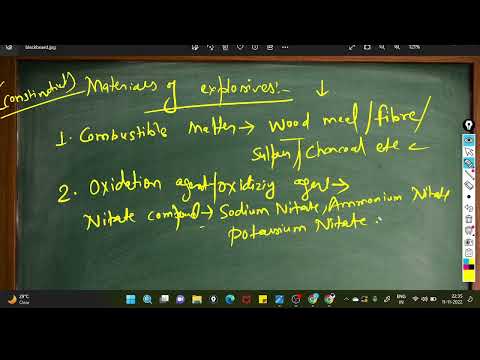 blackboard.jpg
121%
(Constinuents) Materials of explosives:-
1. Combustible Matter → Wood meel/fibre/
Sulfur/Charcoal etc
2. Oxidation agent/oxidiziy agent →
Nitate compound → Sodium Nitate, Ammonium Nitate,
Potassium Nitate
29°C
Clear
ENG
IN
22:35
11-11-2022